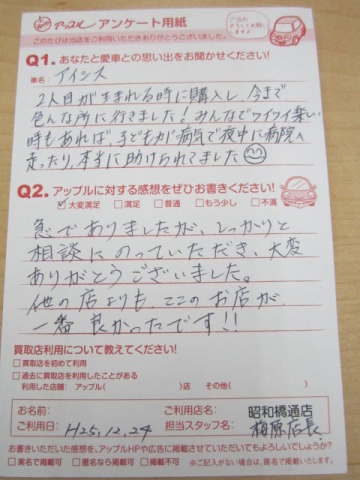 アップル アンケート用紙
このたびは当店をご利用いただきありがとうございました。
ご協力
よろしくお願い
します♪
Q1.あなたと愛車との思い出をお聞かせください!
車名: アイシス
2人目が生まれる時に購入し、今まで
色んな所に行きました!みんなでワイワイ楽しい
時もあれば、子どもが病気で夜中に病院へ
走ったり、本当に助けられてました
Q2.アップルに対する感想をぜひお書きください!
☑大変満足 □満足 □普通 □もう少し □不満
急でありましたが、しっかりと
相談にのっていただき、大変
ありがとうございました。
他の店よりも ここのお店が
一番 良かったです!!
買取店利用について教えてください!
□買取店を初めて利用
□過去に買取店を利用したことがある
利用した店舗: アップル( )店 その他( )
お名前:
ご利用店名: 昭和橋通店
ご利用日: H25.12.24
担当スタッフ名: 梅原店長
お書きいただいた感想を、アップルHPや広告に掲載させていただいてもよろしいでしょうか?
□実名で掲載可 □匿名なら掲載可 □掲載不可 ※ご記入がない場合は、匿名で掲載いたします。